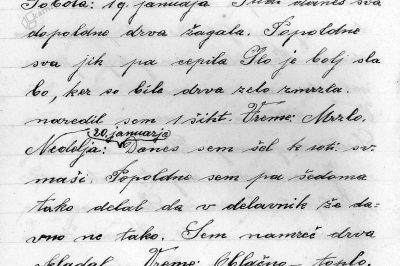 Sobota: 19. januarja Tudi danes sva
dopoldne drva žagala. Popoldne
sva jih pa cepila Šlo je bolj sla
bo, ker so bila drva zelo zmrzla.
naredil sem 1 šiht. Vreme: Mrzlo.
20. januarja
Nedelja: Danes sem šel k toti sv.
maši. Popoldne sem pa sedoma
tako delal da v delavnik že da-
vno ne tako. Sem namreč drva
skladal. Vreme: Oblačno - toplo.